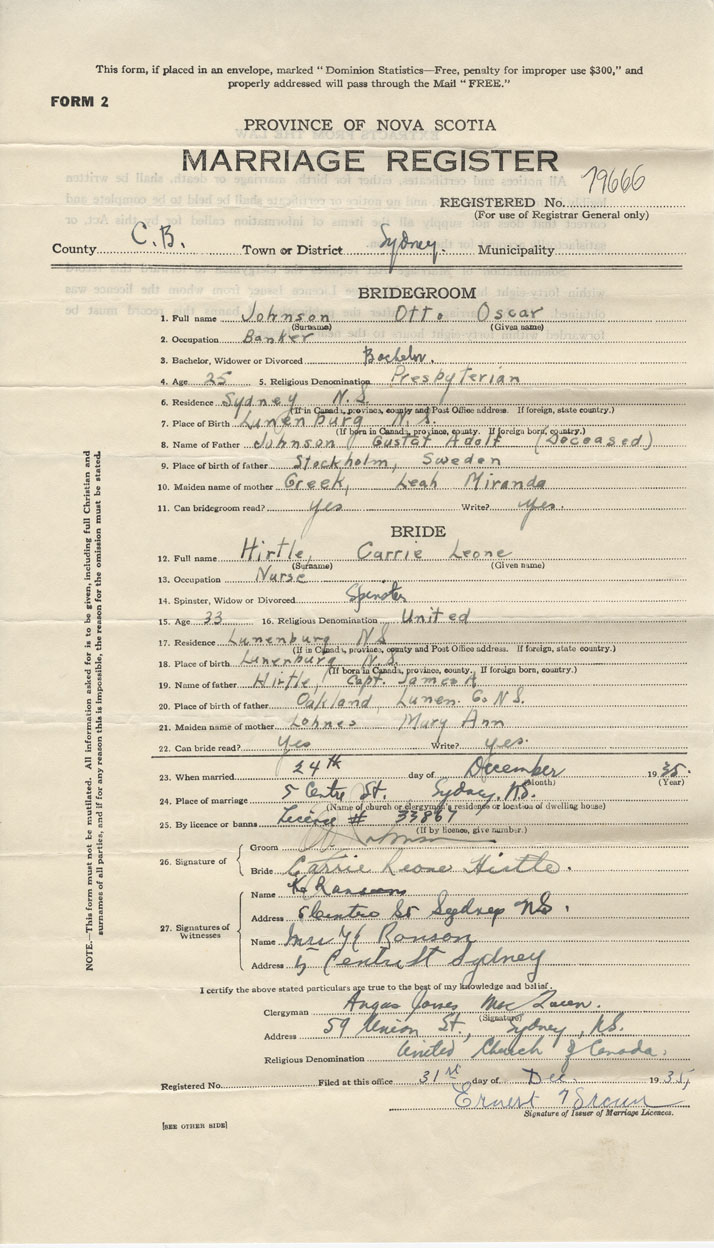 This form, if placed in an envelope, marked "Dominion Statistics—Free, penalty for improper use $300," and
properly addressed will pass through the Mail "FREE."
FORM 2
PROVINCE OF NOVA SCOTIA
MARRIAGE REGISTER
REGISTERED No. 79666
(For use of Registrar General only)
County C.B. Town or District Sydney. Municipality
BRIDEGROOM
1. Full name Johnson Otto Oscar
(Surname) (Given name)
2. Occupation Banker
3. Bachelor, Widower or Divorced Bachelor.
4. Age 25 5. Religious Denomination Presbyterian
6. Residence Sydney N.S.
(If in Canada, province, county and Post Office address. If foreign, state country.)
7. Place of Birth Lunenburg N.S.
(If born in Canada, province, county. If foreign born, country.)
8. Name of Father Johnson Gustaf Adolf (Deceased)
9. Place of birth of father Stockholm, Sweden
10. Maiden name of mother Greek, Leah Miranda
11. Can bridegroom read? yes Write? yes.
BRIDE
12. Full name Hirtle, Carrie Leone
(Surname) (Given name)
13. Occupation Nurse
14. Spinster, Widow or Divorced Spinster
15. Age 33 16. Religious Denomination United
17. Residence Lunenburg N.S
(If in Canada, province, county and Post Office address. If foreign, state country.)
18. Place of birth Lunenburg N.S.
(If born in Canada, province, county. If foreign born, country.)
19. Name of father Hirtle, Capt. James A
20. Place of birth of father Oakland, Lunen. Co N.S.
21. Maiden name of mother Lohnes Mary Ann
22. Can bride read? yes Write? yes.
23. When married 24th day of December 1935.
(Month) (Year)
24. Place of marriage 5 Centre St. Sydney, N.S.
(Name of church or clergyman's residence or location of dwelling house)
25. By licence or banns License # 33867
(If by licence, give number.)
26. Signature of
Groom Johnson
Bride Carrie Leone Hirtle.
27. Signatures of Witnesses
Name Ranson
Address 5 Centre St Sydney NS.
Name Mrs H Ranson
Address 5 Centre St Sydney
I certify the above stated particulars are true to the best of my knowledge and belief.
Clergyman Angus James MacQueen.
(Signature)
Address 59 Union St., Sydney, N.S.
Religious Denomination United Church of Canada.
Registered No. Filed at this office 31st day of Dec 1935,
Ernest
Signature of Issuer of Marriage Licences.
[SEE OTHER SIDE]
NOTE.—This form must not be mutilated. All information asked for is to be given, including full Christian and
surnames of all parties, and if for any reason this is impossible, the reason for the omission must be stated.